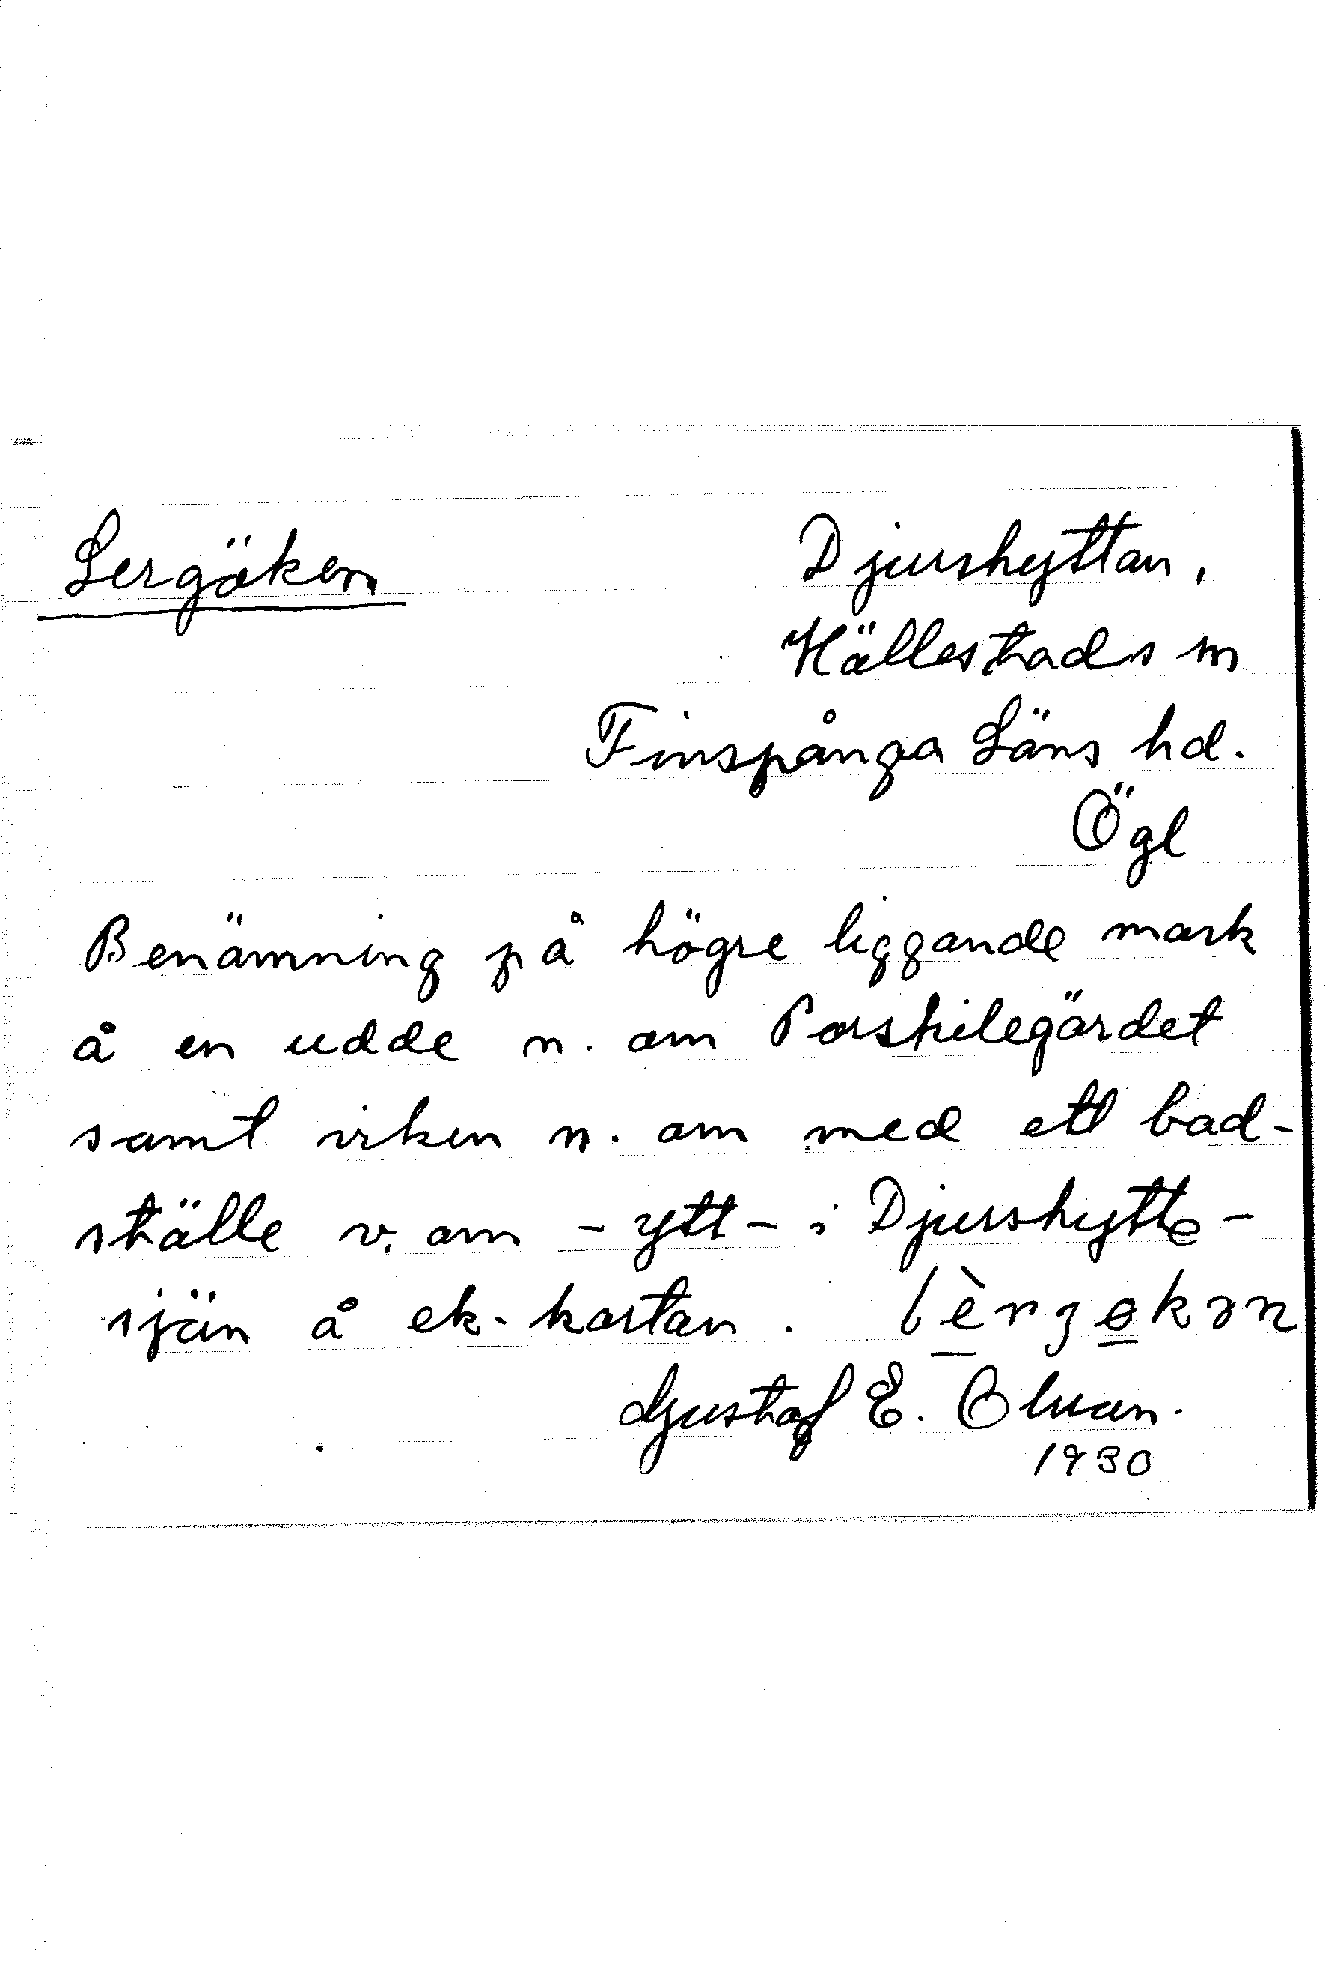 Lergöken
Djurshyttan,
Hällestads sn
Finspånga Läns hd.
Ögl
Benämning på högre liggande mark
å en udde n. om Porskilegärdet
samt viken n. om med ett bad-
ställe v. om - ytt - i Djurshytte-
sjön å ek. kartan. lèrgøkən
Gustaf E. Olson.
1930